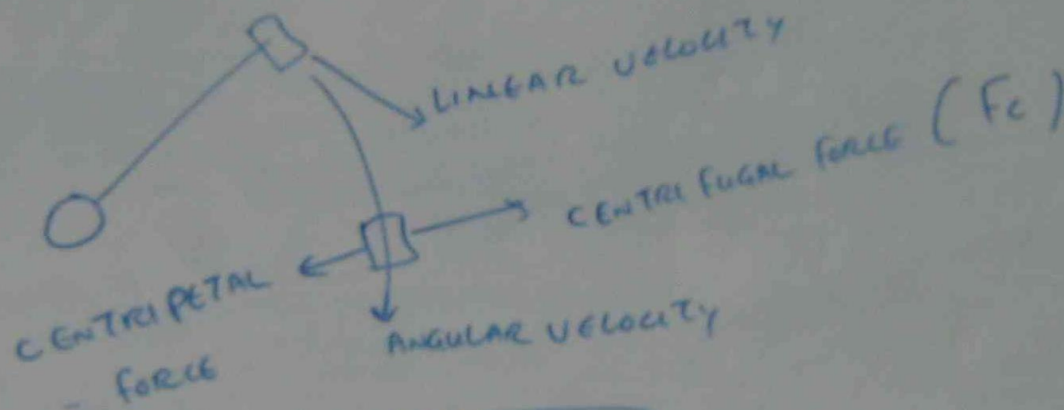 LINEAR VELOCITY
CENTRIFUGAL FORCE (Fc)
CENTRIPETAL
FORCE
ANGULAR VELOCITY